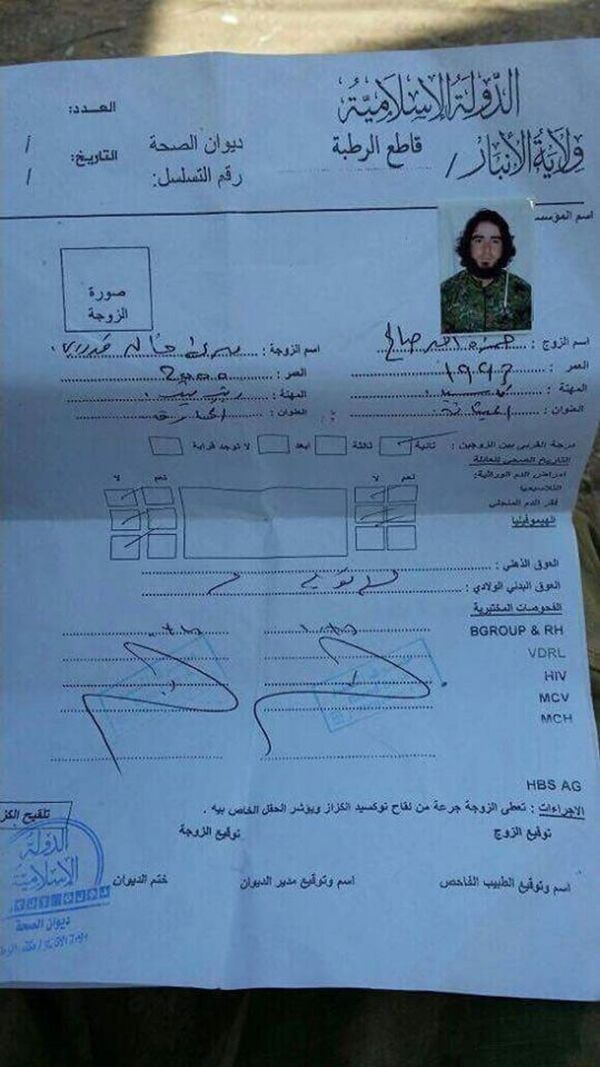 الدولة الإسلامية
ولاية الأنبار / قاطع الرطبة
العدد:
ديوان الصحة
التاريخ: /
رقم التسلسل: /
اسم المؤسس
صورة
الزوجة
اسم الزوج : حمزة احمد صالح
اسم الزوجة :
العمر : ١٩٩٣
العمر : ٢٠٠٠
المهنة :
المهنة : ربة بيت
العنوان :
العنوان :
درجة القربى بين الزوجين : ثانية ثالثة ابعد لا توجد قرابة
التاريخ الصحي للعائلة
امراض الدم الوراثية:
نعم لا
نعم لا
الثلاسيميا
فقر الدم المنجلي
الهيموفيليا
العوق الذهني :
العوق البدني الولادي :
الفحوصات المختبرية
BGROUP & RH
VDRL
HIV
MCV
MCH
HBS AG
الاجراءات : تعطى الزوجة جرعة من لقاح توكسيد الكزاز ويؤشر الحقل الخاص بيه .
تلقيح الكز
توقيع الزوج
توقيع الزوجة
اسم وتوقيع الطبيب الفاحص
اسم وتوقيع مدير الديوان
ختم الديوان
الدولة
الإسلامية
ديوان الصحة